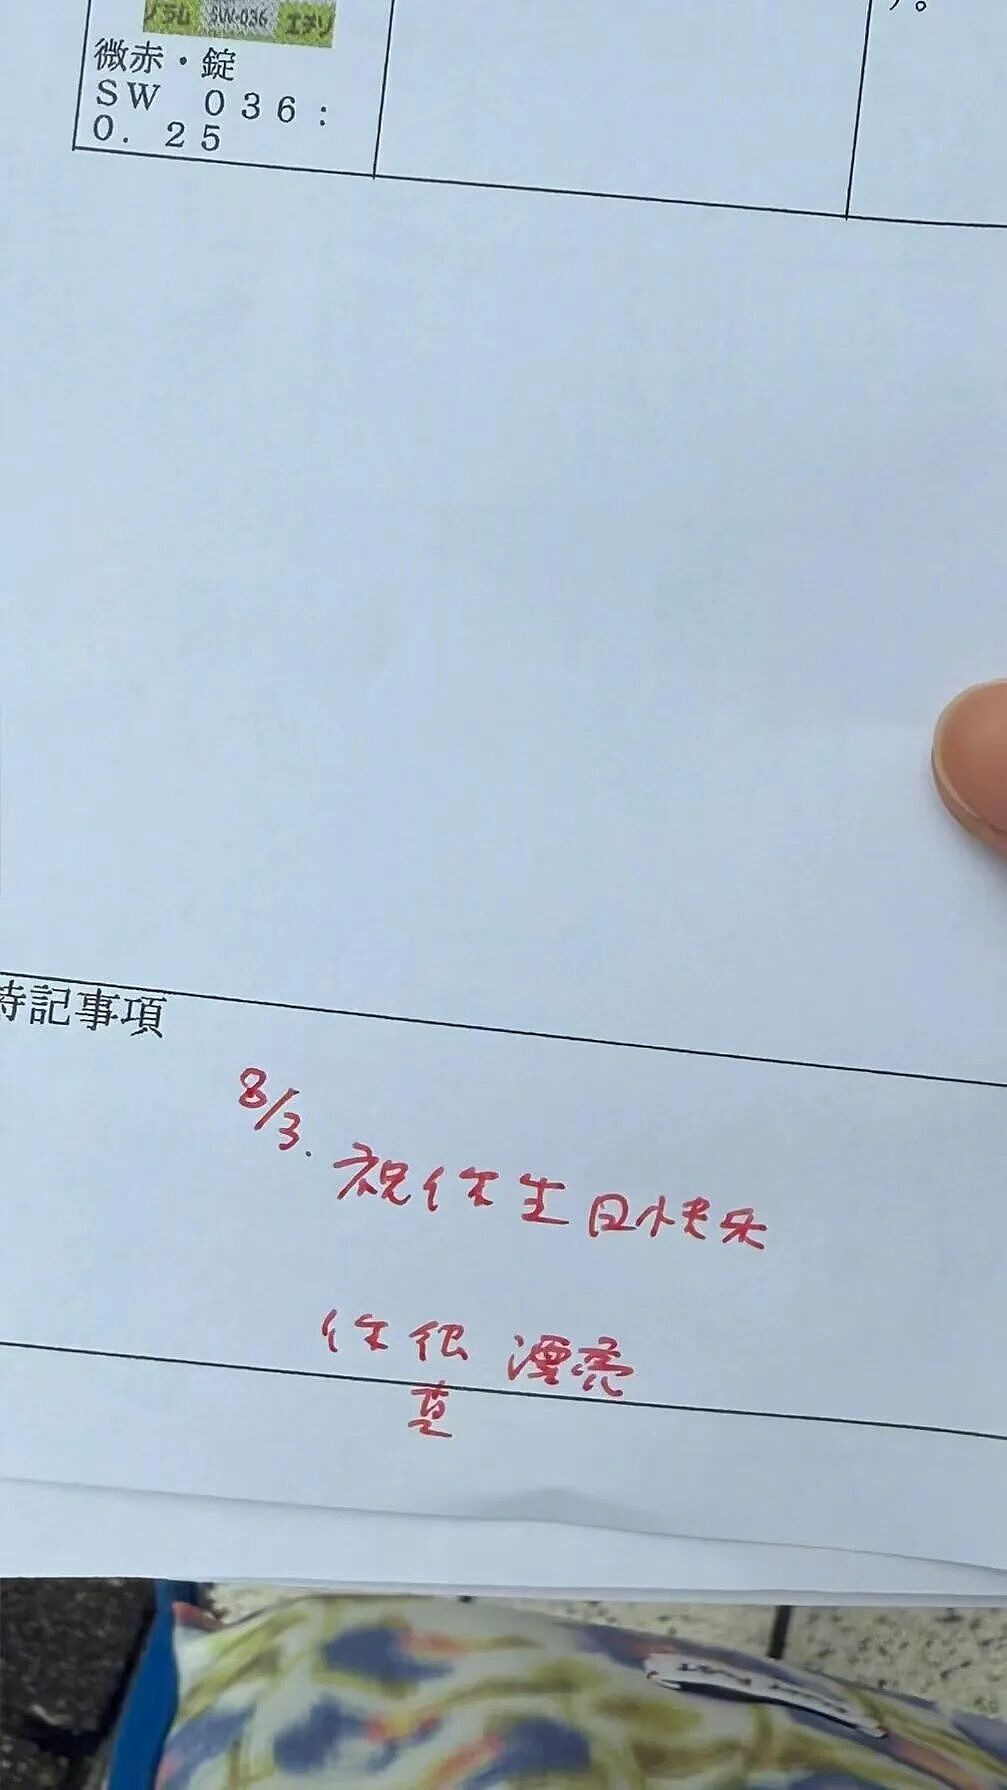 ノラム SW-036 エチゾ
微赤・錠
SW 036:
0.25
。
特記事項
8/3. 祝你生日快乐
你很漂亮
真